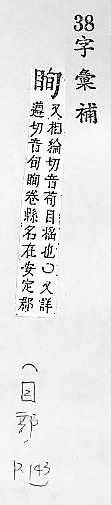 38字彙補
眴 又相綸切音荀目搖也○又詳
遵切音旬眴卷縣名在安定郡
(目部
P.143